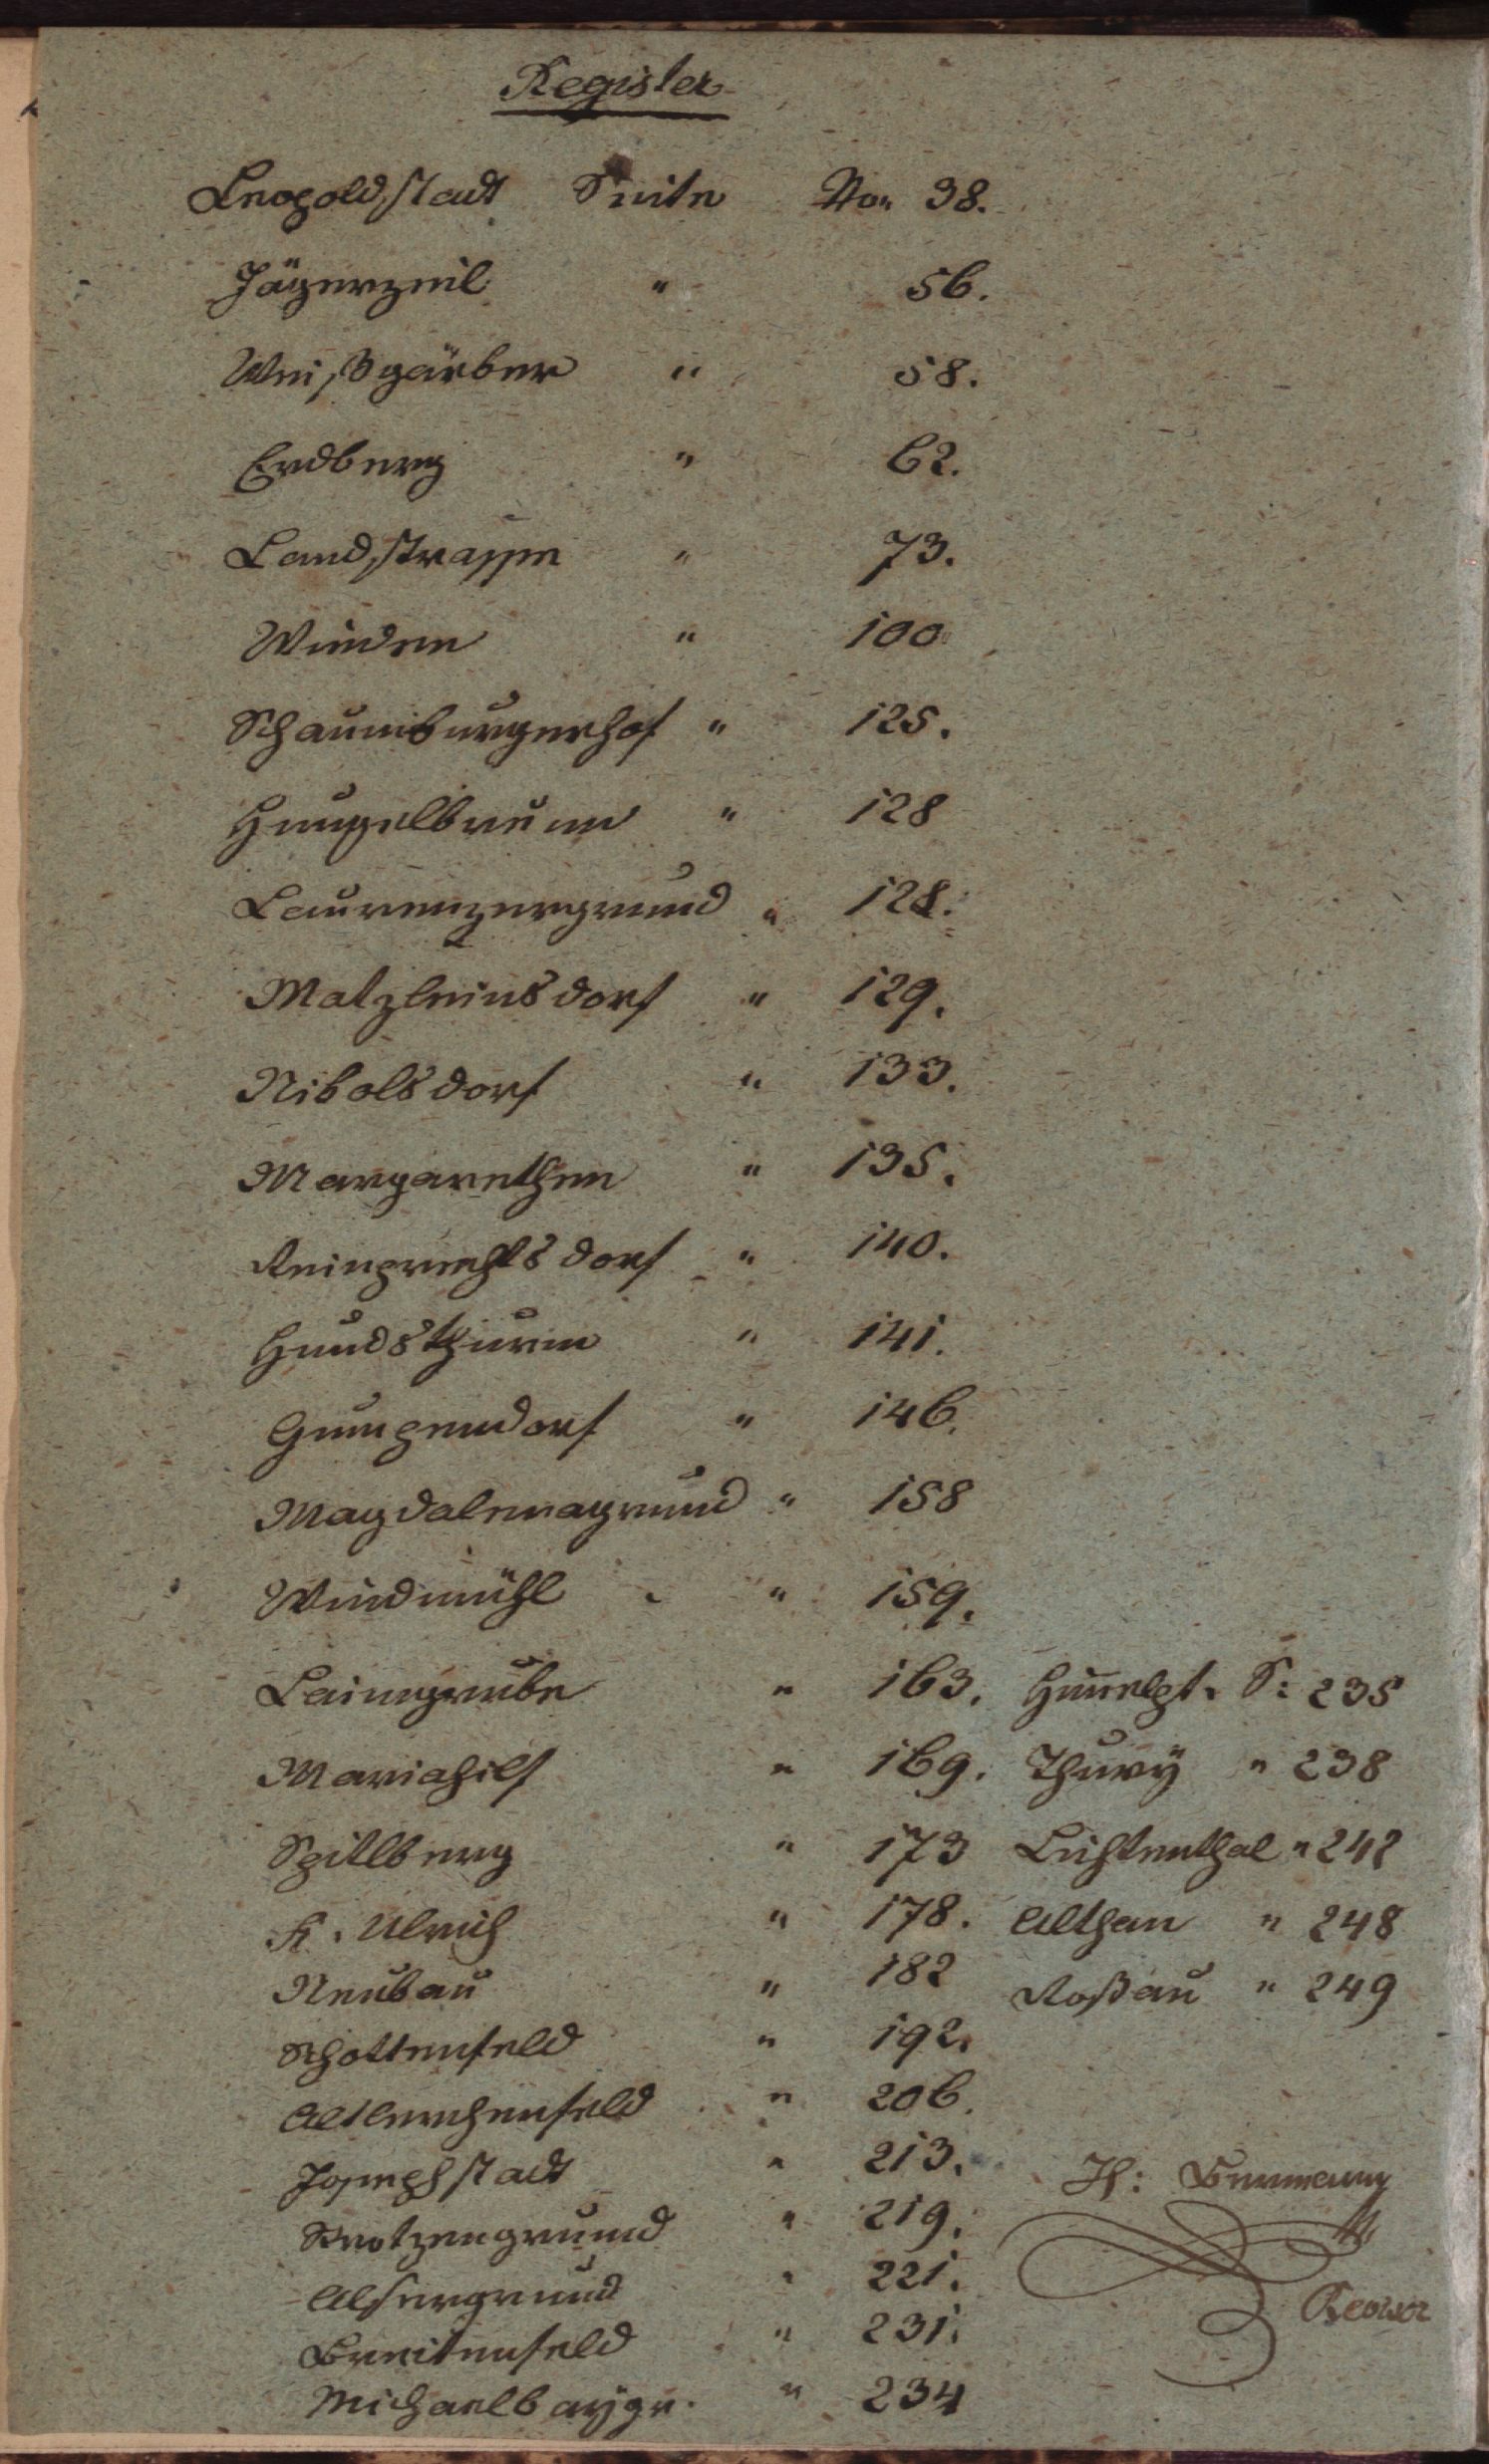 Register
Leopoldstadt Seite Nro. 38.
Jägerzeil " 56.
Weißgärber " 58.
Erdberg " 62.
Landstrasse " 73.
Wieden " 100.
Schaumburgerhof " 125.
Hungelbrunn " 128
Laurenzergrund " 128.
Matzleinsdorf " 129.
Nikolsdorf " 133.
Margarethen " 135.
Reinprechtsdorf " 140.
Hundsthurm " 141.
Gumpendorf " 146.
Magdalenagrund " 158
Windmühl " 159.
Laimgrube " 163.
Mariahilf " 169.
Spitlberg " 173
St. Ulrich " 178.
Neubau " 182
Schottenfeld " 192.
Altlerchenfeld " 206.
Josephstadt " 213.
Strotzengrund " 219.
Alsergrund " 221.
Breitenfeld " 231.
Michaelbaÿgr. " 234
Himelpt. S: 235
Thurÿ " 238
Lichtenthal " 242
Althan " 248
Roßau " 249